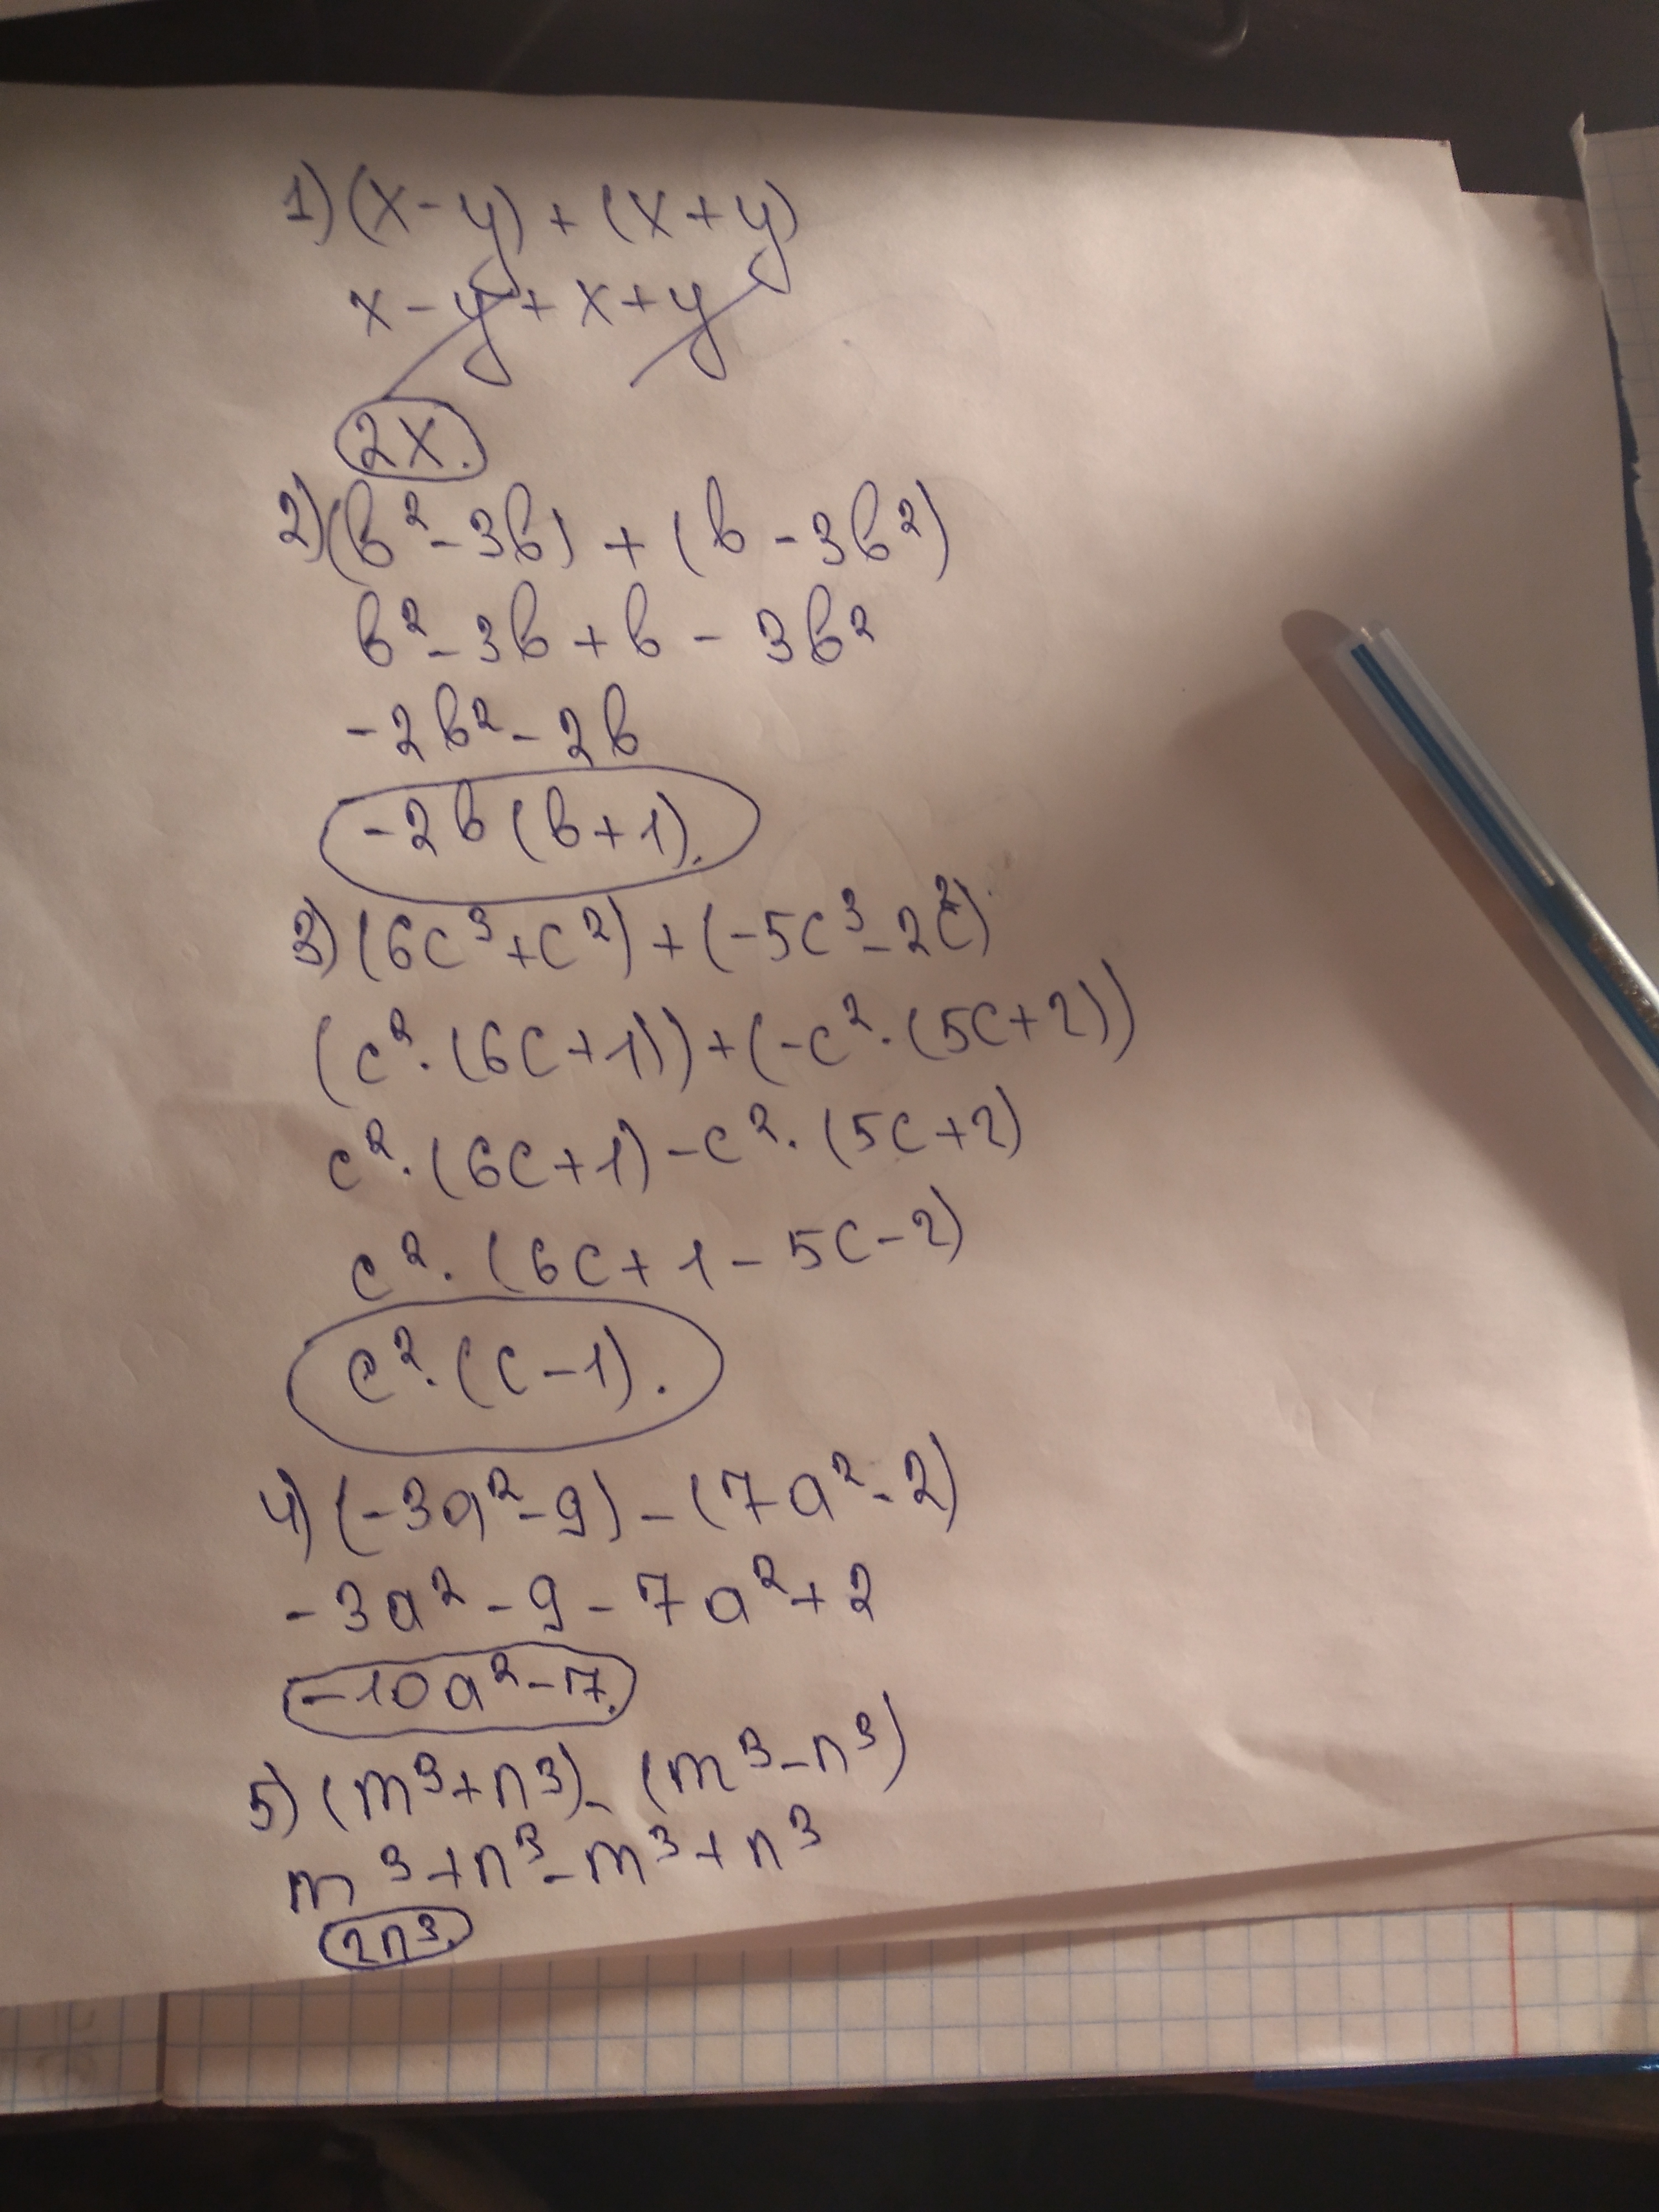 1) (x - y) + (x + y)
x - y + x + y
2x.
2) (b² - 3b) + (b - 3b²)
b² - 3b + b - 3b²
-2b² - 2b
-2b(b+1).
3) (6c³ + c²) + (-5c³ - 2c²)
(c² · (6c+1)) + (-c² · (5c+2))
c² · (6c+1) - c² · (5c+2)
c² · (6c + 1 - 5c - 2)
c² · (c - 1).
4) (-3a² - 9) - (7a² - 2)
-3a² - 9 - 7a² + 2
-10a² - 7.
5) (m³ + n³) - (m³ - n³)
m³ + n³ - m³ + n³
2n³.